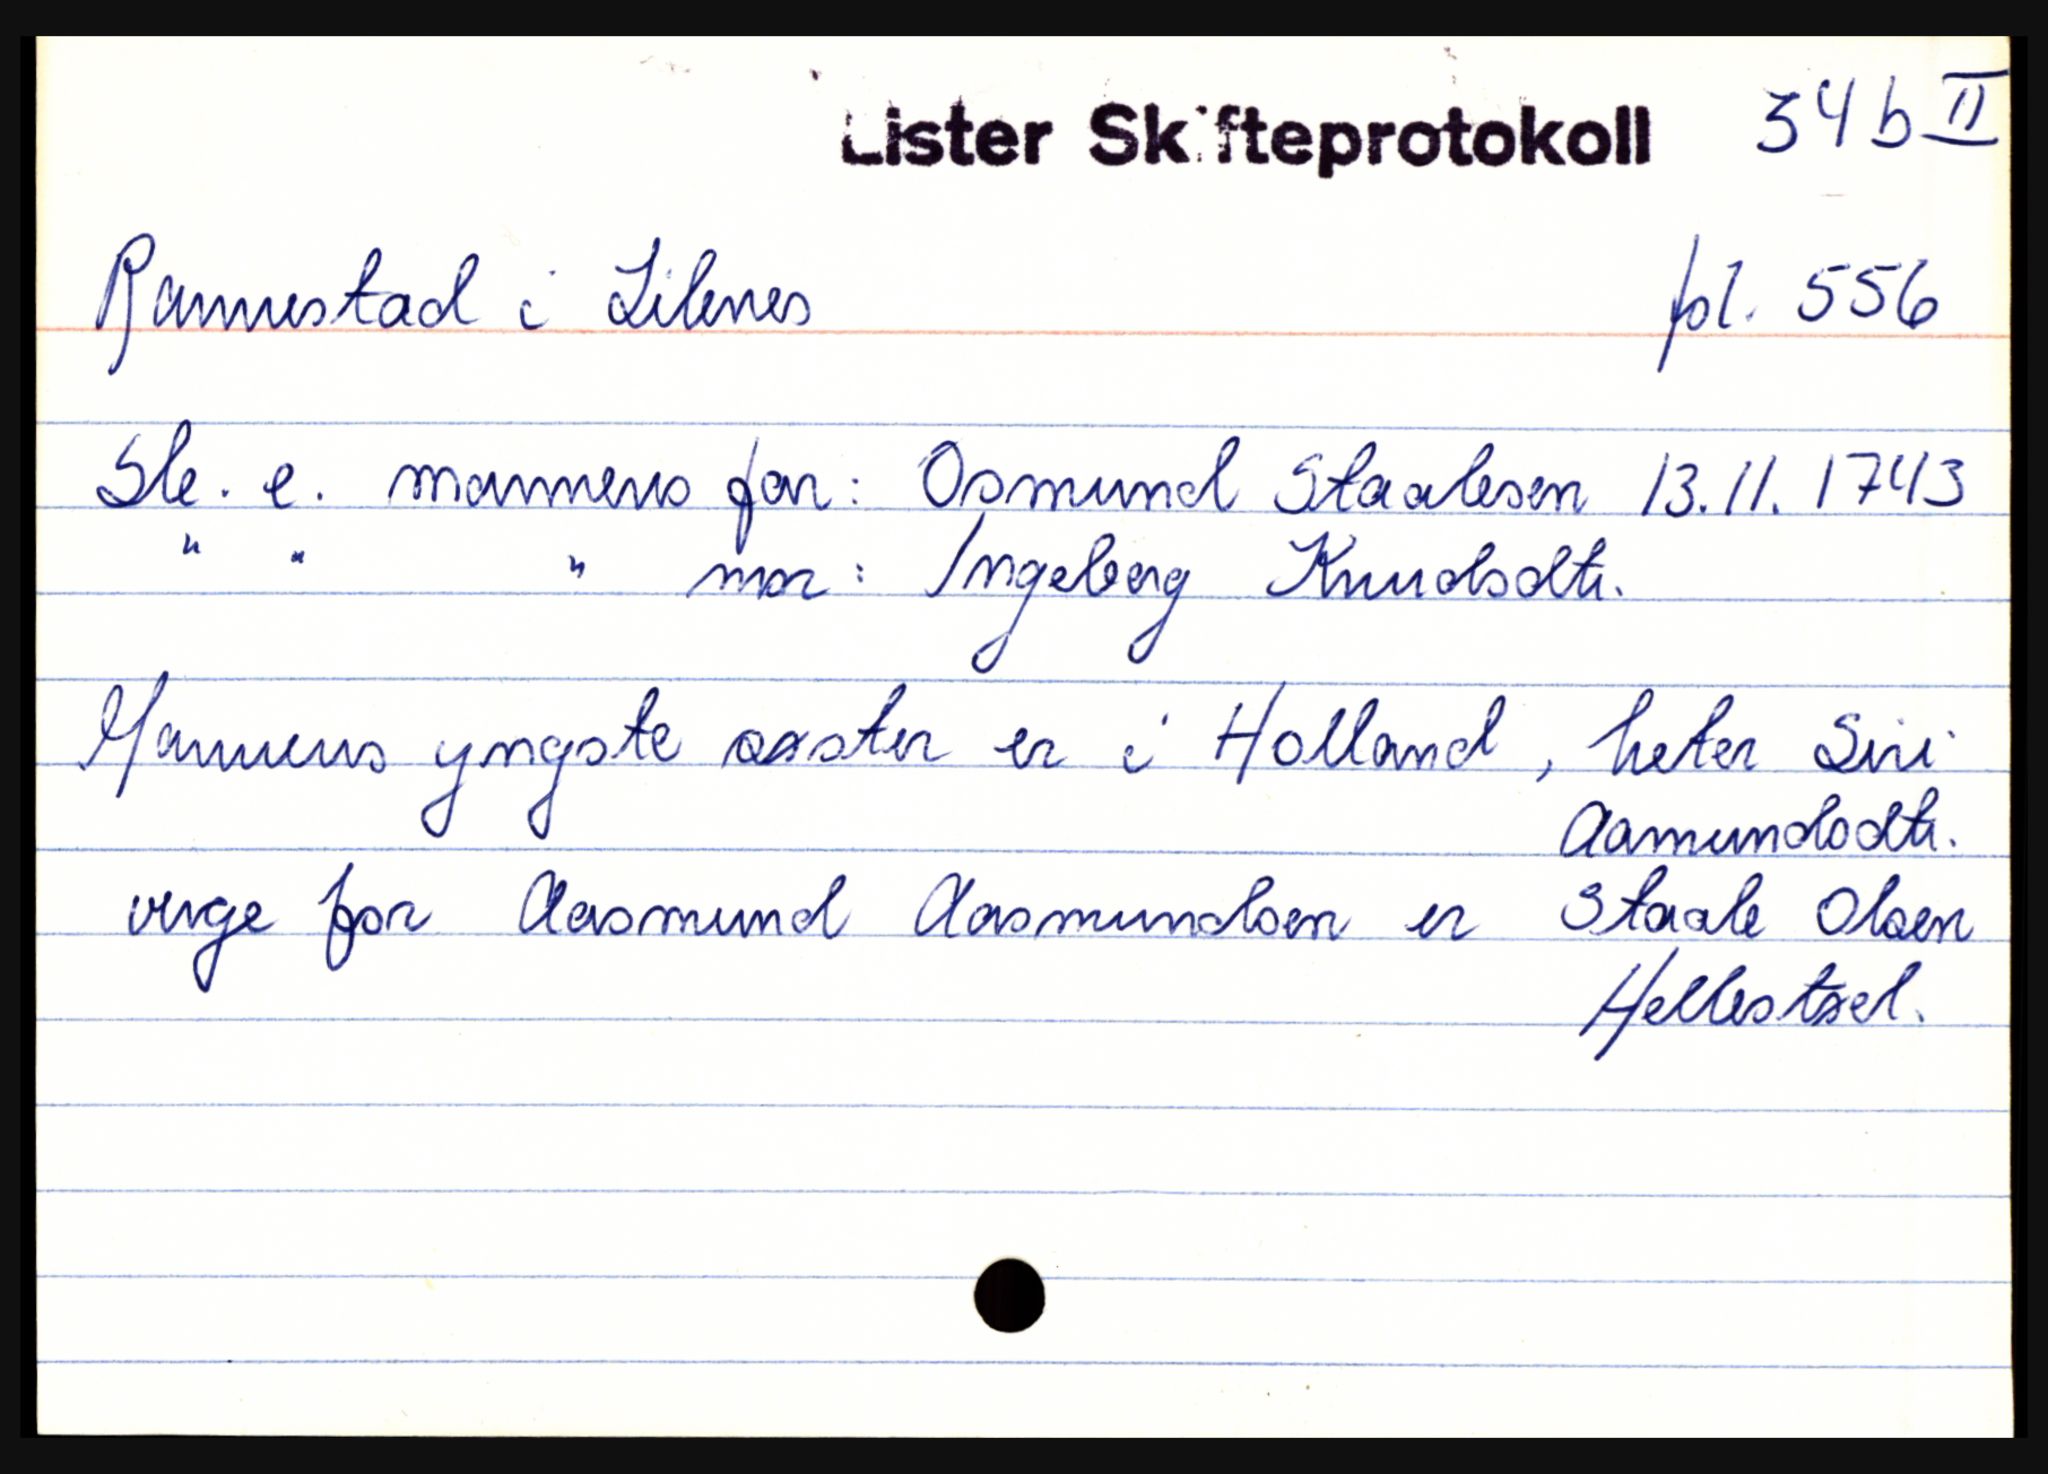 Lister Skifteprotokoll 34 b II
Rannestad i Lilenes fol. 556
Ste. e. mannens far: Osmund Staalesen 13.11.1743
" " " mor: Ingeborg Knudsdtr.
Mannens yngste søster er i Holland, heter Siri
Aamundsdtr.
verge for Aasmund Aasmundsen er Staale Olsen
Hellestøel.